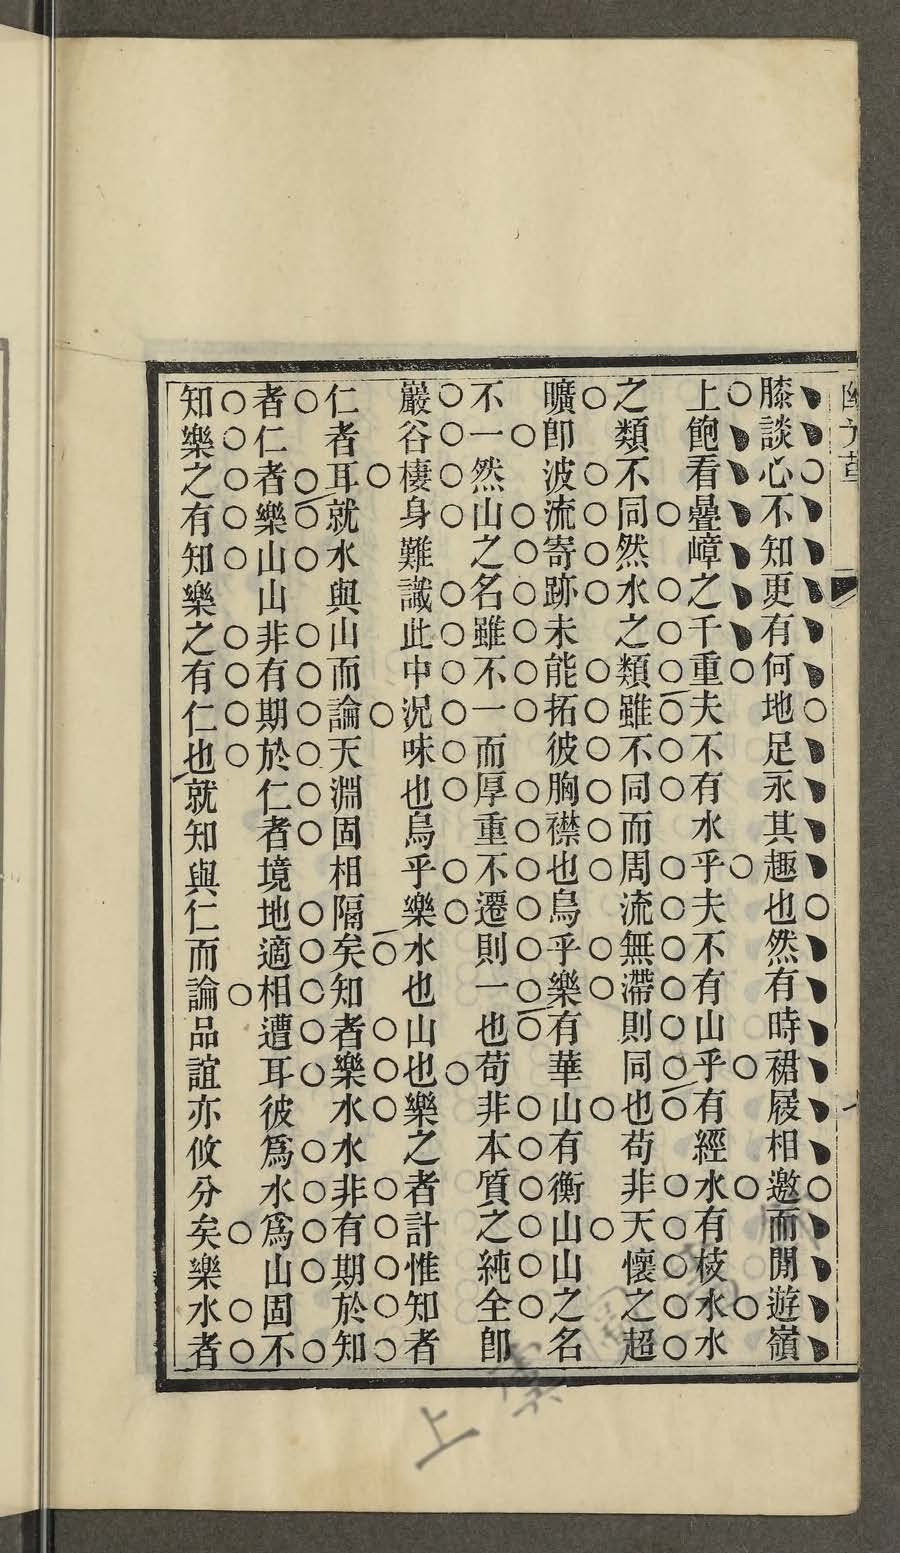 膝談心不知更有何地足永其趣也然有時裙屐相邀而閒遊嶺
上飽看疊嶂之千重夫不有水乎夫不有山乎有經水有枝水水
之類不同然水之類雖不同而周流無滯則同也苟非天懷之超
曠卽波流寄跡未能拓彼胸襟也烏乎樂有華山有衡山山之名
不一然山之名雖不一而厚重不遷則一也苟非本質之純全卽
巖谷棲身難識此中況味也烏乎樂水也山也樂之者計惟知者
仁者耳就水與山而論天淵固相隔矣知者樂水水非有期於知
者仁者樂山山非有期於仁者境地適相遭耳彼爲水爲山固不
知樂之有知樂之有仁也就知與仁而論品誼亦攸分矣樂水者
上虞